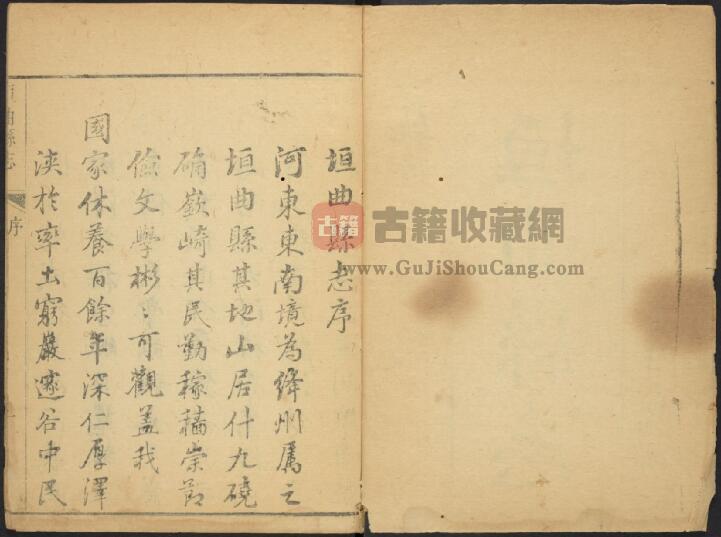 垣曲縣志序
河東東南境為絳州屬之
垣曲縣其地山居什九磽
确嶔崎其民勤稼穡崇節
儉文學彬〻可觀蓋我
國家休養百餘年深仁厚澤
浹於率土窮巖邃谷中民
垣曲縣志
序
古籍
古籍收藏網
www.GuJiShouCang.com